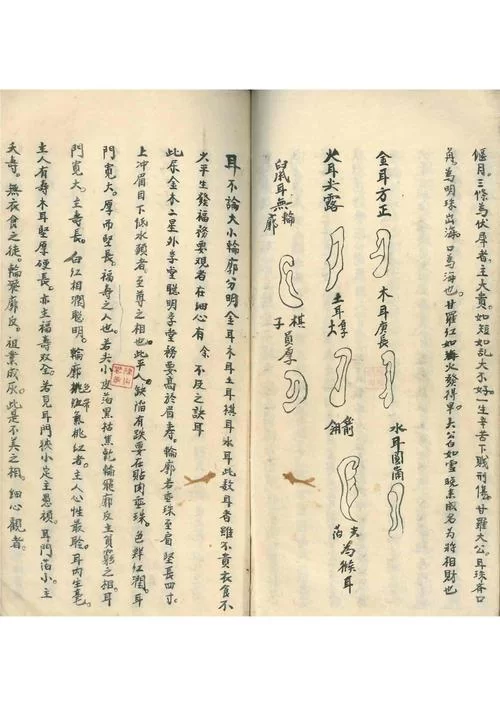 偃月。三條為伏犀者。主大貴。如短如乱大不好。一生辛苦下賎刑傷。甘羅大公。耳珠吝口
角。為明珠出海。口為海也。甘羅紅如火發得早。大公白如雪晚来成名。为將相財也
金耳方正
木耳庚長
水耳圓
火耳尖露
土耳大厚
箭羽
尖
為猴耳
鼠耳無輪廓
棋子員厚
耳不論大小輪廓分明金耳木耳土耳棋耳水耳此數耳者雖不貴衣食不
少平生發福務要观者在細心有余不及之訣耳
此尽金木二星外学堂聰明学堂務要高於眉寿。輪廓若垂珠至肩堅長四寸。
上冲眉目下低水頭者。至尊之相也。此乎缺陷有跌要在貼肉垂珠。色鮮紅潤。耳
門寬大。厚而堅長。福寿之人也。若尖小皮落黑枯焦乾輪飛廓反主貧窮之相。耳
門寬大。主壽長。白紅相潤聰明。輪廓桃紅者。主人心性最聆。耳内生毫。
主人有寿木耳堅厚硬長。亦主福壽双全。若見耳門狹小定主愚頑。耳門薄小。主
夭壽。無衣食之徒。輪飛廓反。祖業成灰。此是不美之相。細心觀者。